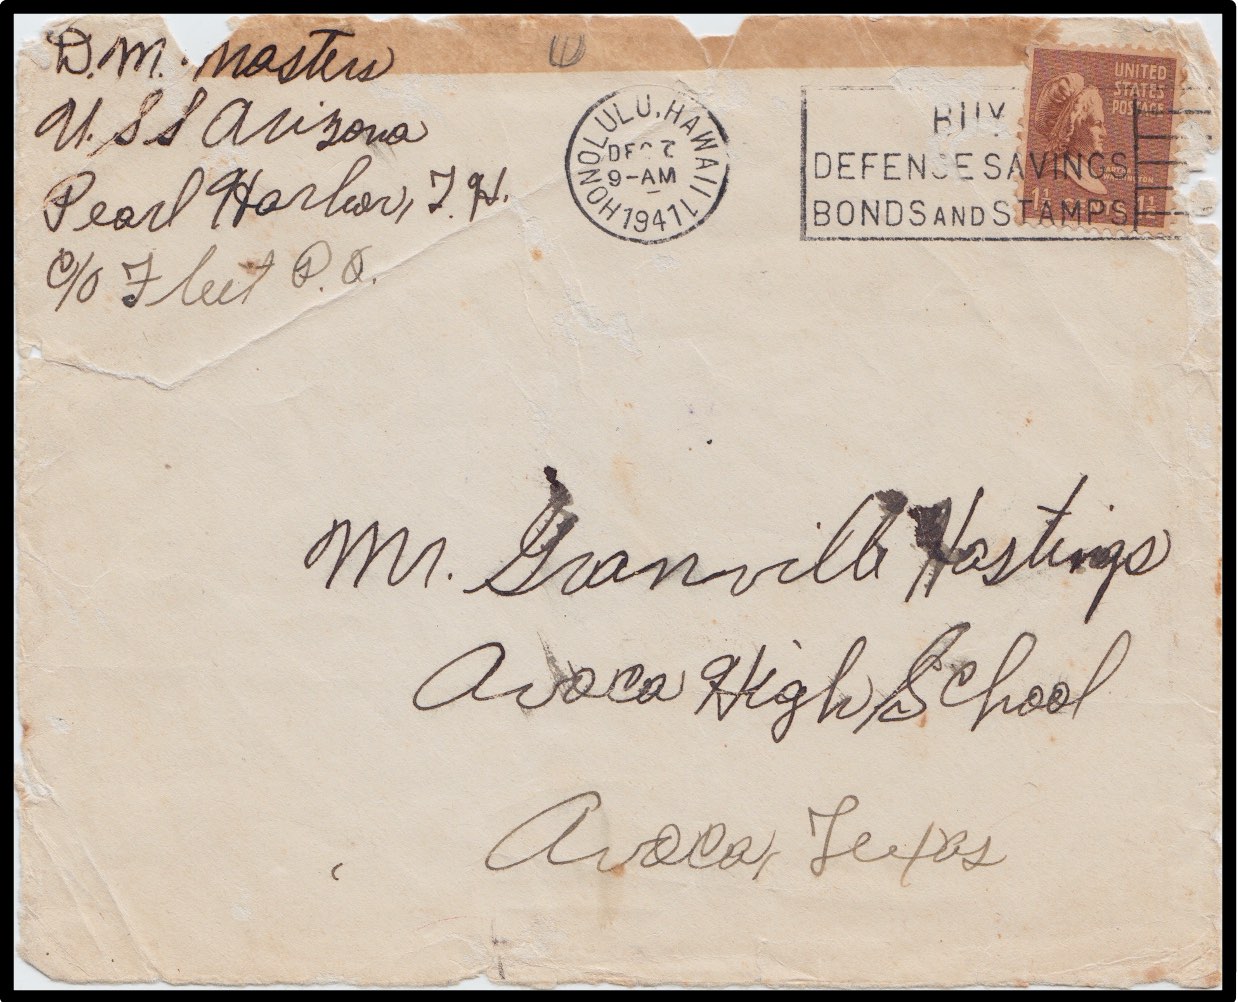 D. M. Masters
U. S S Arizona
Pearl Harbor, T. H.
c/o Fleet P. O.
HONOLULU, HAWAII
DEC 7
9-AM
1941
1
BUY
DEFENSE SAVINGS
BONDS AND STAMPS
UNITED
STATES
POSTAGE
1½
Mr. Granville Hastings
Avoca High School
Avoca, Texas